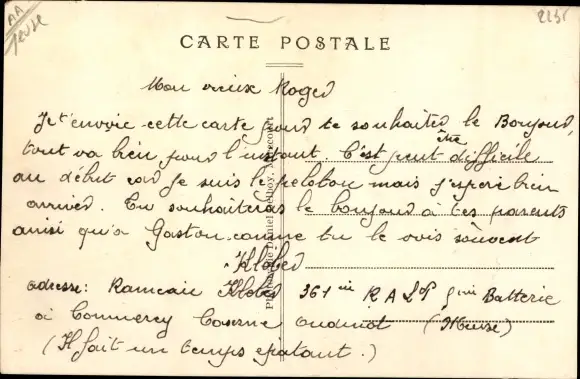 AA
2235
CARTE POSTALE
Mon vieux Roger
Je t'envoie cette carte pour te souhaiter le Bonjour,
tout va bien pour l'instant. C'est peut être difficile
au début car je suis le peloton mais j'espère bien
arriver. Tu souhaiteras le bonjour à tes parents
ainsi qu'a Gaston comme tu le vois souvent
Kléber
adresse: Kléber 361 ie R A L P 5 ie Batterie
à Commercy Caserne oudinot (Meuse)
(Il fait un temps epatant.)